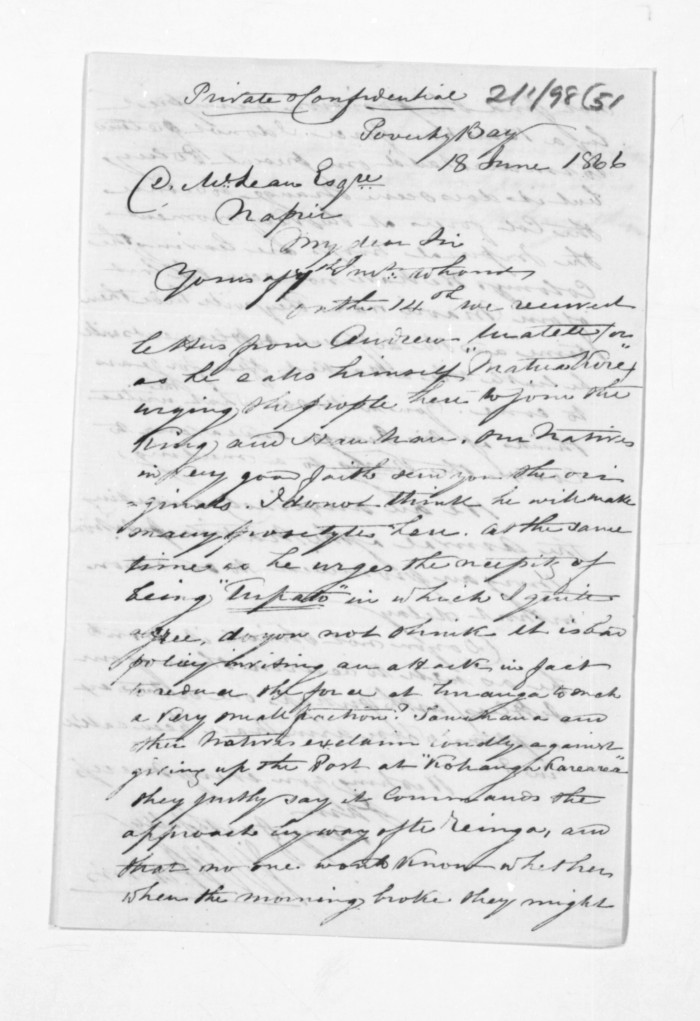 Private & Confidential 2/1/98 (51
Poverty Bay
18 June 1866
D. McLean Esqre
Napier
My dear Sir
Yours of 9th Inst. to hand
on the 14th we received
letters from Andrew or
as he calls himself "Matua Kore"
urging the people here to join the
King and Hau hau. Our Natives
in very good faith send you the ori
-ginals. I do not think he will make
many proselytes here. at the same
time as he urges the necessity of
being "Tupato" in which I quite
agree, do you not think it is bad
policy inviting an attack, in fact
to reduce the force at Turanga to such
a very small fraction? Tawhana and
the Natives exclaim loudly against
giving up the Post at Kohanga Kareare"
they justly say it commands the
approach by way of the Reinga, and
that no one would know whether
when the morning broke they might